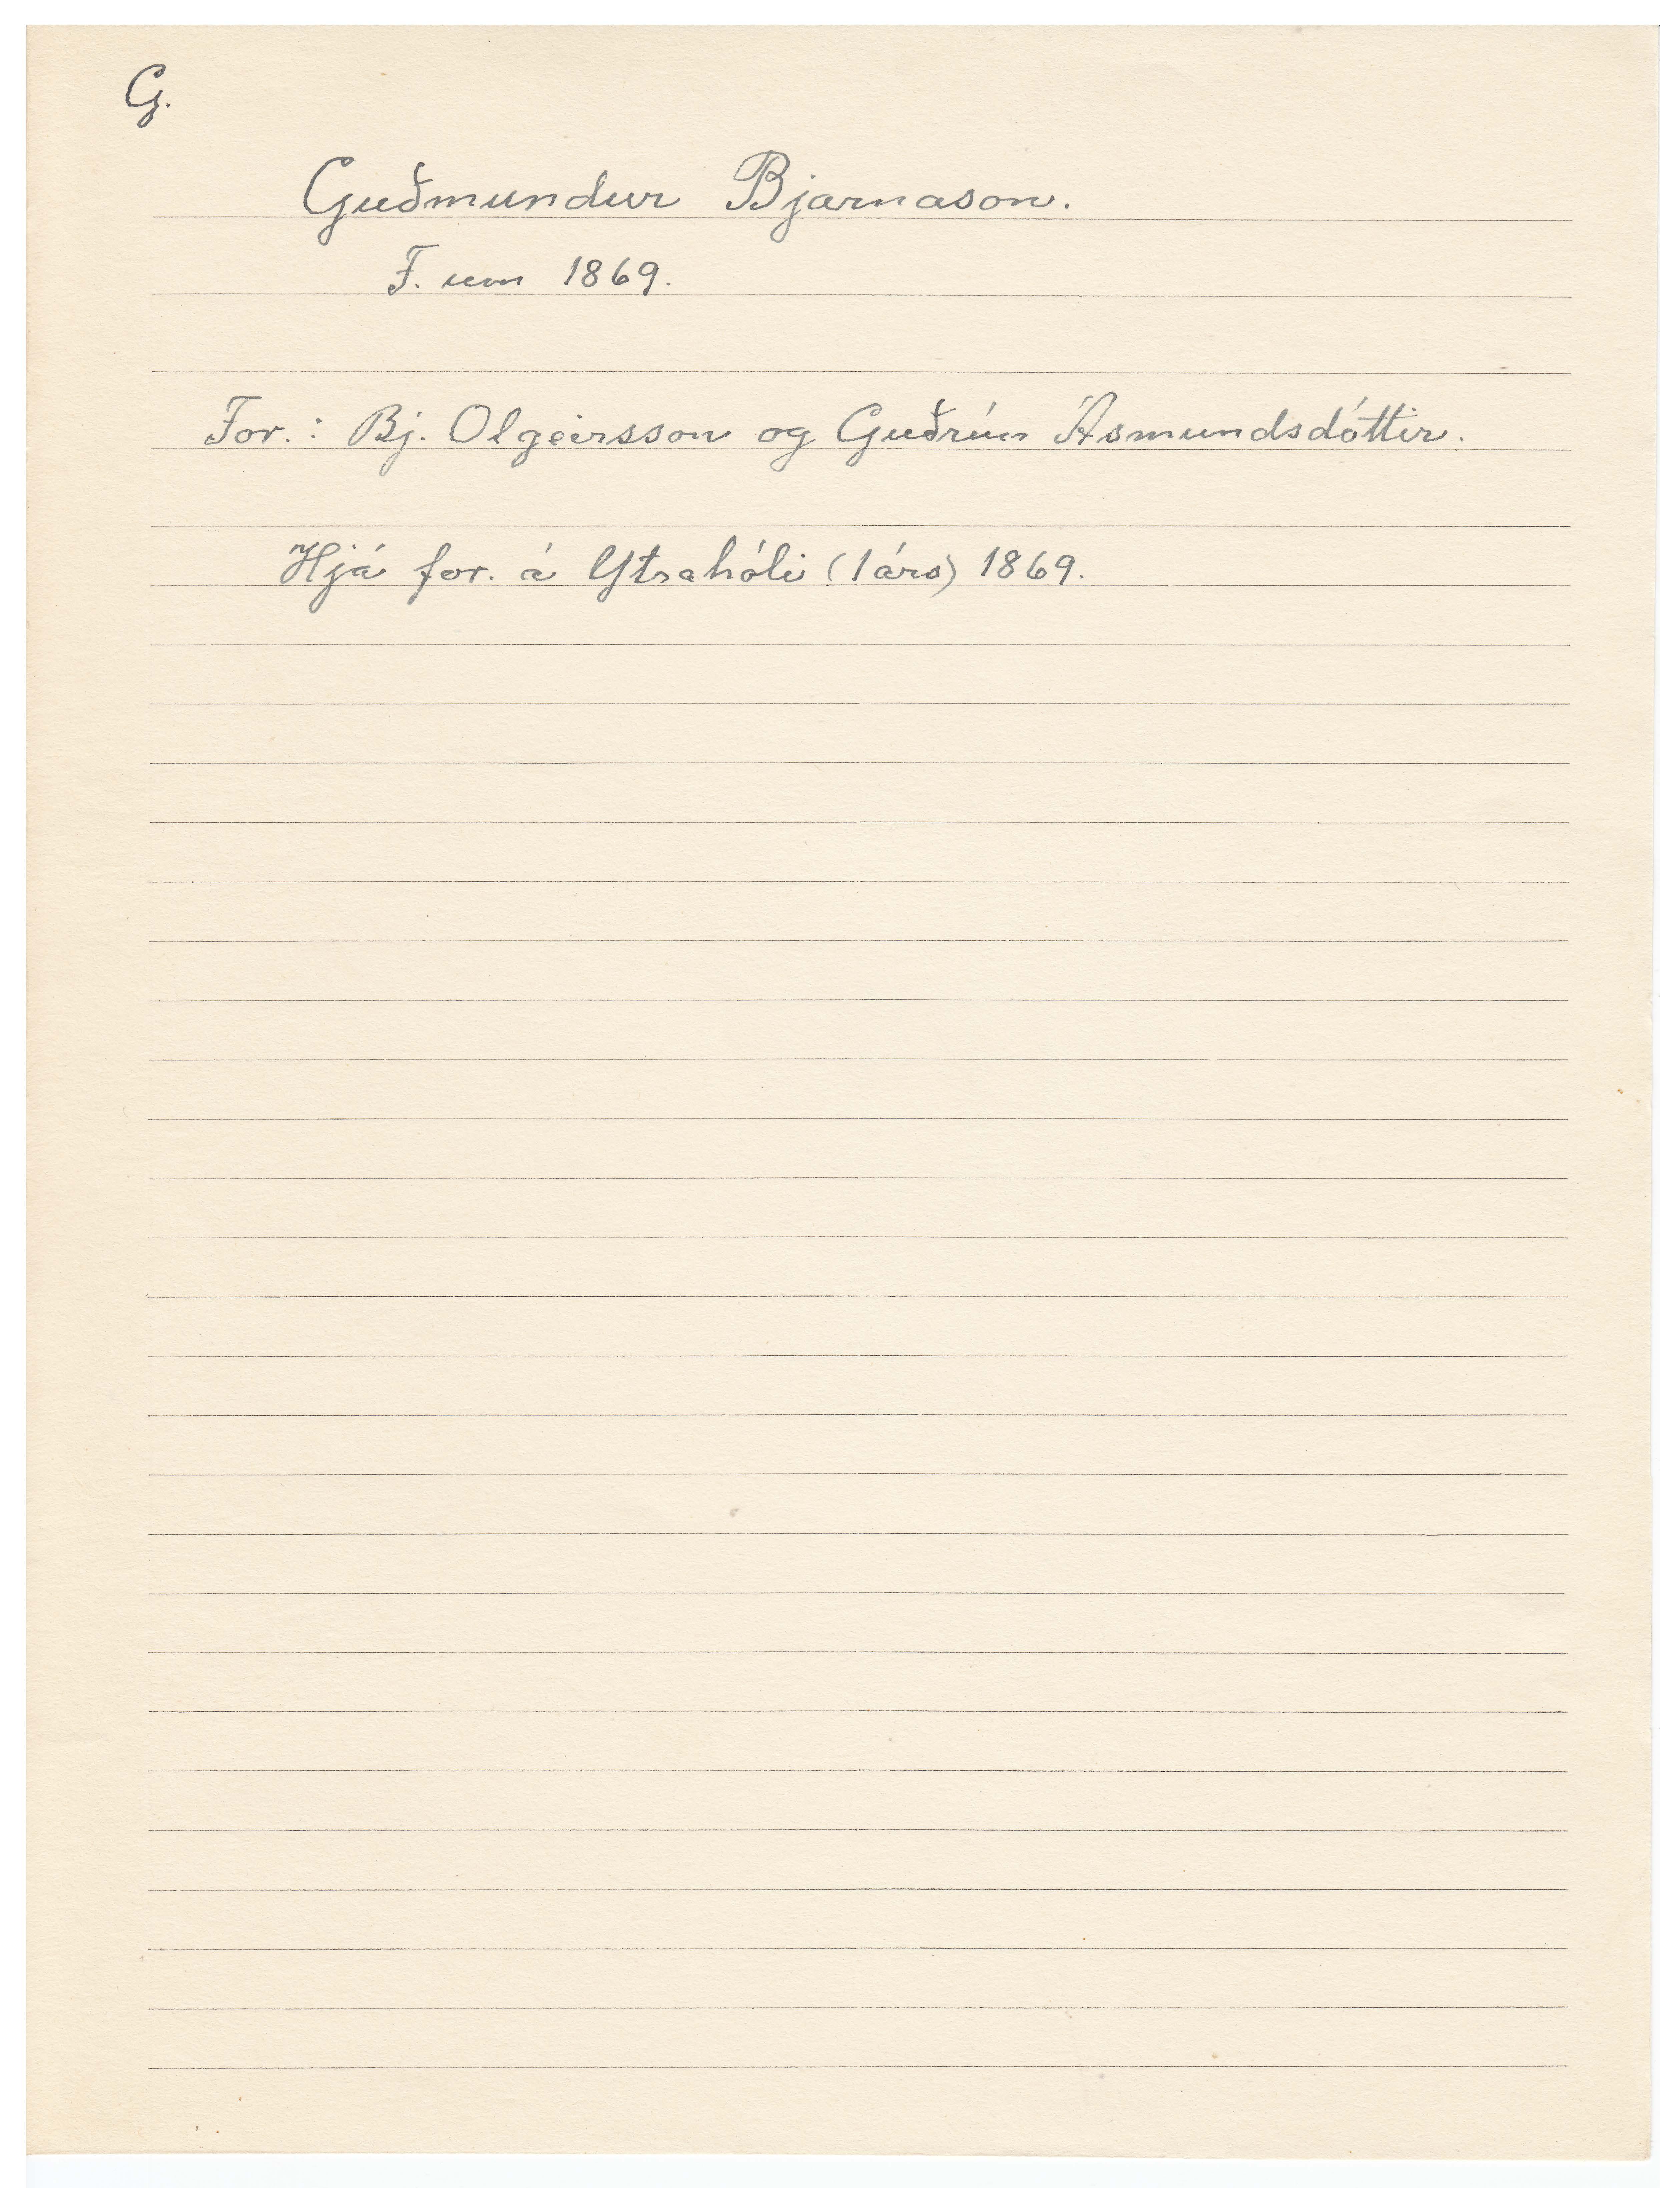 G.
Guðmundur Bjarnason.
F. um 1869.
For.: Bj. Olgeirsson og Guðrún Ásmundsdóttir.
Hjá for. á Ytrahóli (1 árs) 1869.